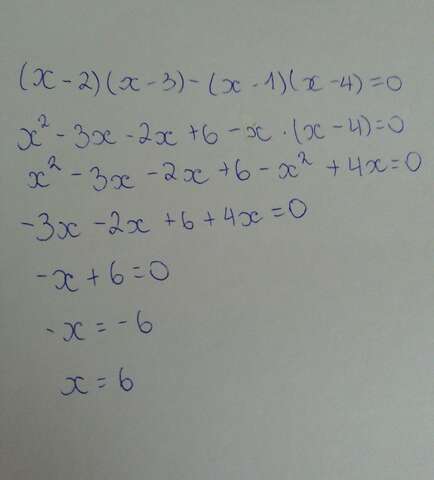 (x - 2)(x - 3) - (x - 1)(x - 4) = 0
x² - 3x - 2x + 6 - x · (x - 4) = 0
x² - 3x - 2x + 6 - x² + 4x = 0
-3x - 2x + 6 + 4x = 0
-x + 6 = 0
-x = -6
x = 6